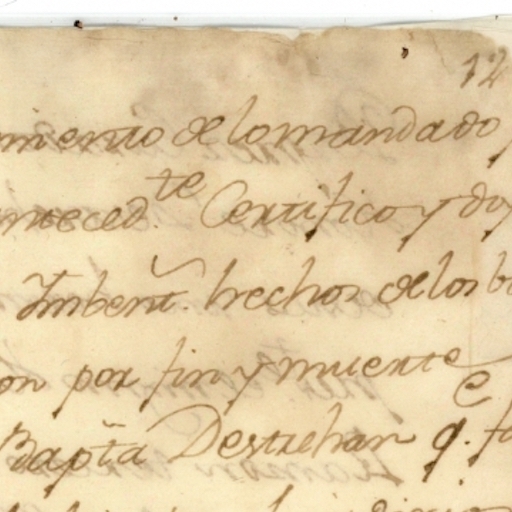 12
miento de lo mandado
anteced.te Certifico y doy
Ymbent. hechos de los b
on por fin y muerte
Bapta Destrehan q.e fu